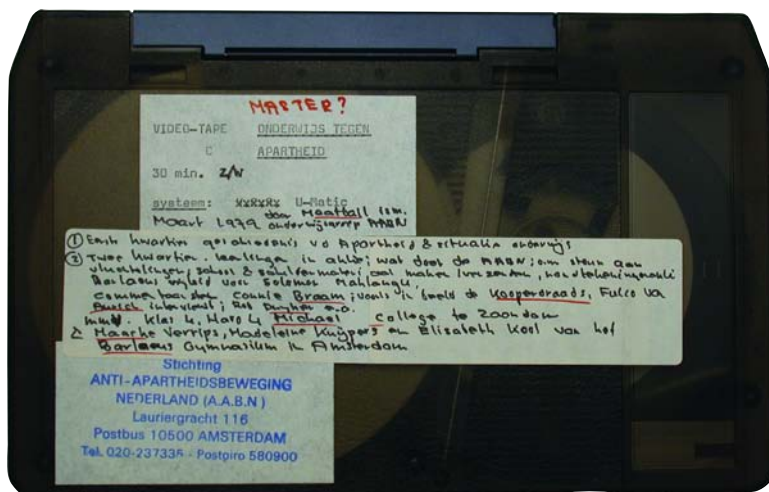 MASTER?
VIDEO-TAPE ONDERWIJS TEGEN
C APARTHEID
30 min. Z/W
systeem: xxxxxx U-Matic
Maart 1979 door Meatball i.s.m.
onderwijsgroep AABN
① Eerste kwartier geschiedenis vd Apartheid & situatie onderwijs
② Twee kwartier. leerlingen in aktie; wat doet de AABN; om steun aan
vluchtelingen, school & schrijfmateriaal maken/verzenden,
Barlaeus voor Solomon Mahlangu,
commentaar Connie Braam; in beeld de Koperdraads, Fulco va
interviewt; e.a.
m.m.v. Klas 4, Havo 4 Michael college te Zaandam
& Maaike Verrips, Madeleine Kuijpers en Elisabeth Kool van het
Barlaeus Gymnasium in Amsterdam
Stichting
ANTI-APARTHEIDSBEWEGING
NEDERLAND (A.A.B.N)
Lauriergracht 116
Postbus 10500 AMSTERDAM
Tel. 020-237335 - Postpiro 580900